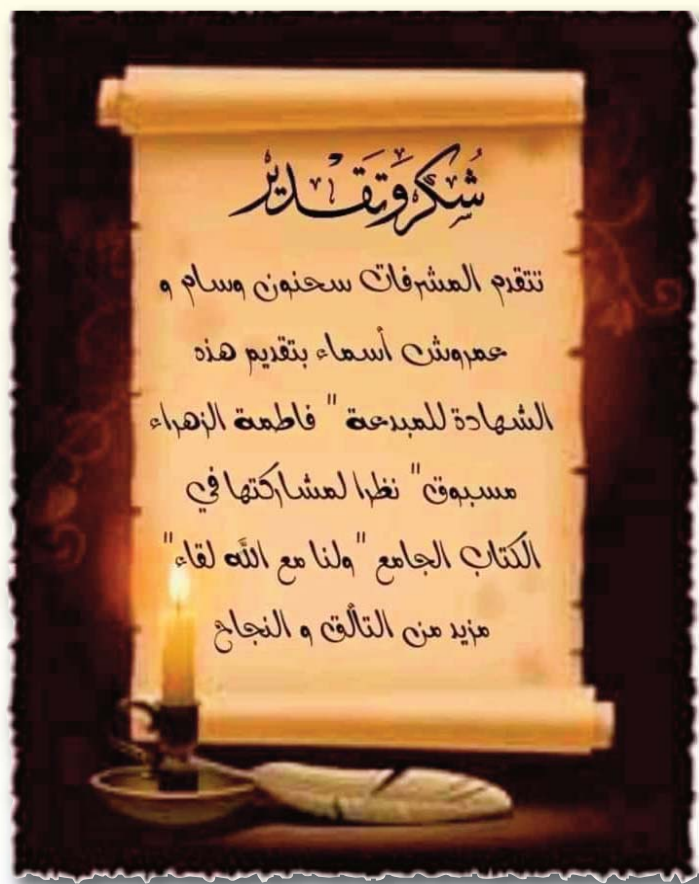 شُكر وَتَقَدير
تتقدم المشرفات سحنون وسام و
عمروش أسماء بتقديم هذه
الشهادة للمبدعة " فاطمة الزهراء
مسبوق" نظرا لمشاركتها في
الكتاب الجامع "ولنا مع الله لقاء"
مزيد من التألق و النجاح